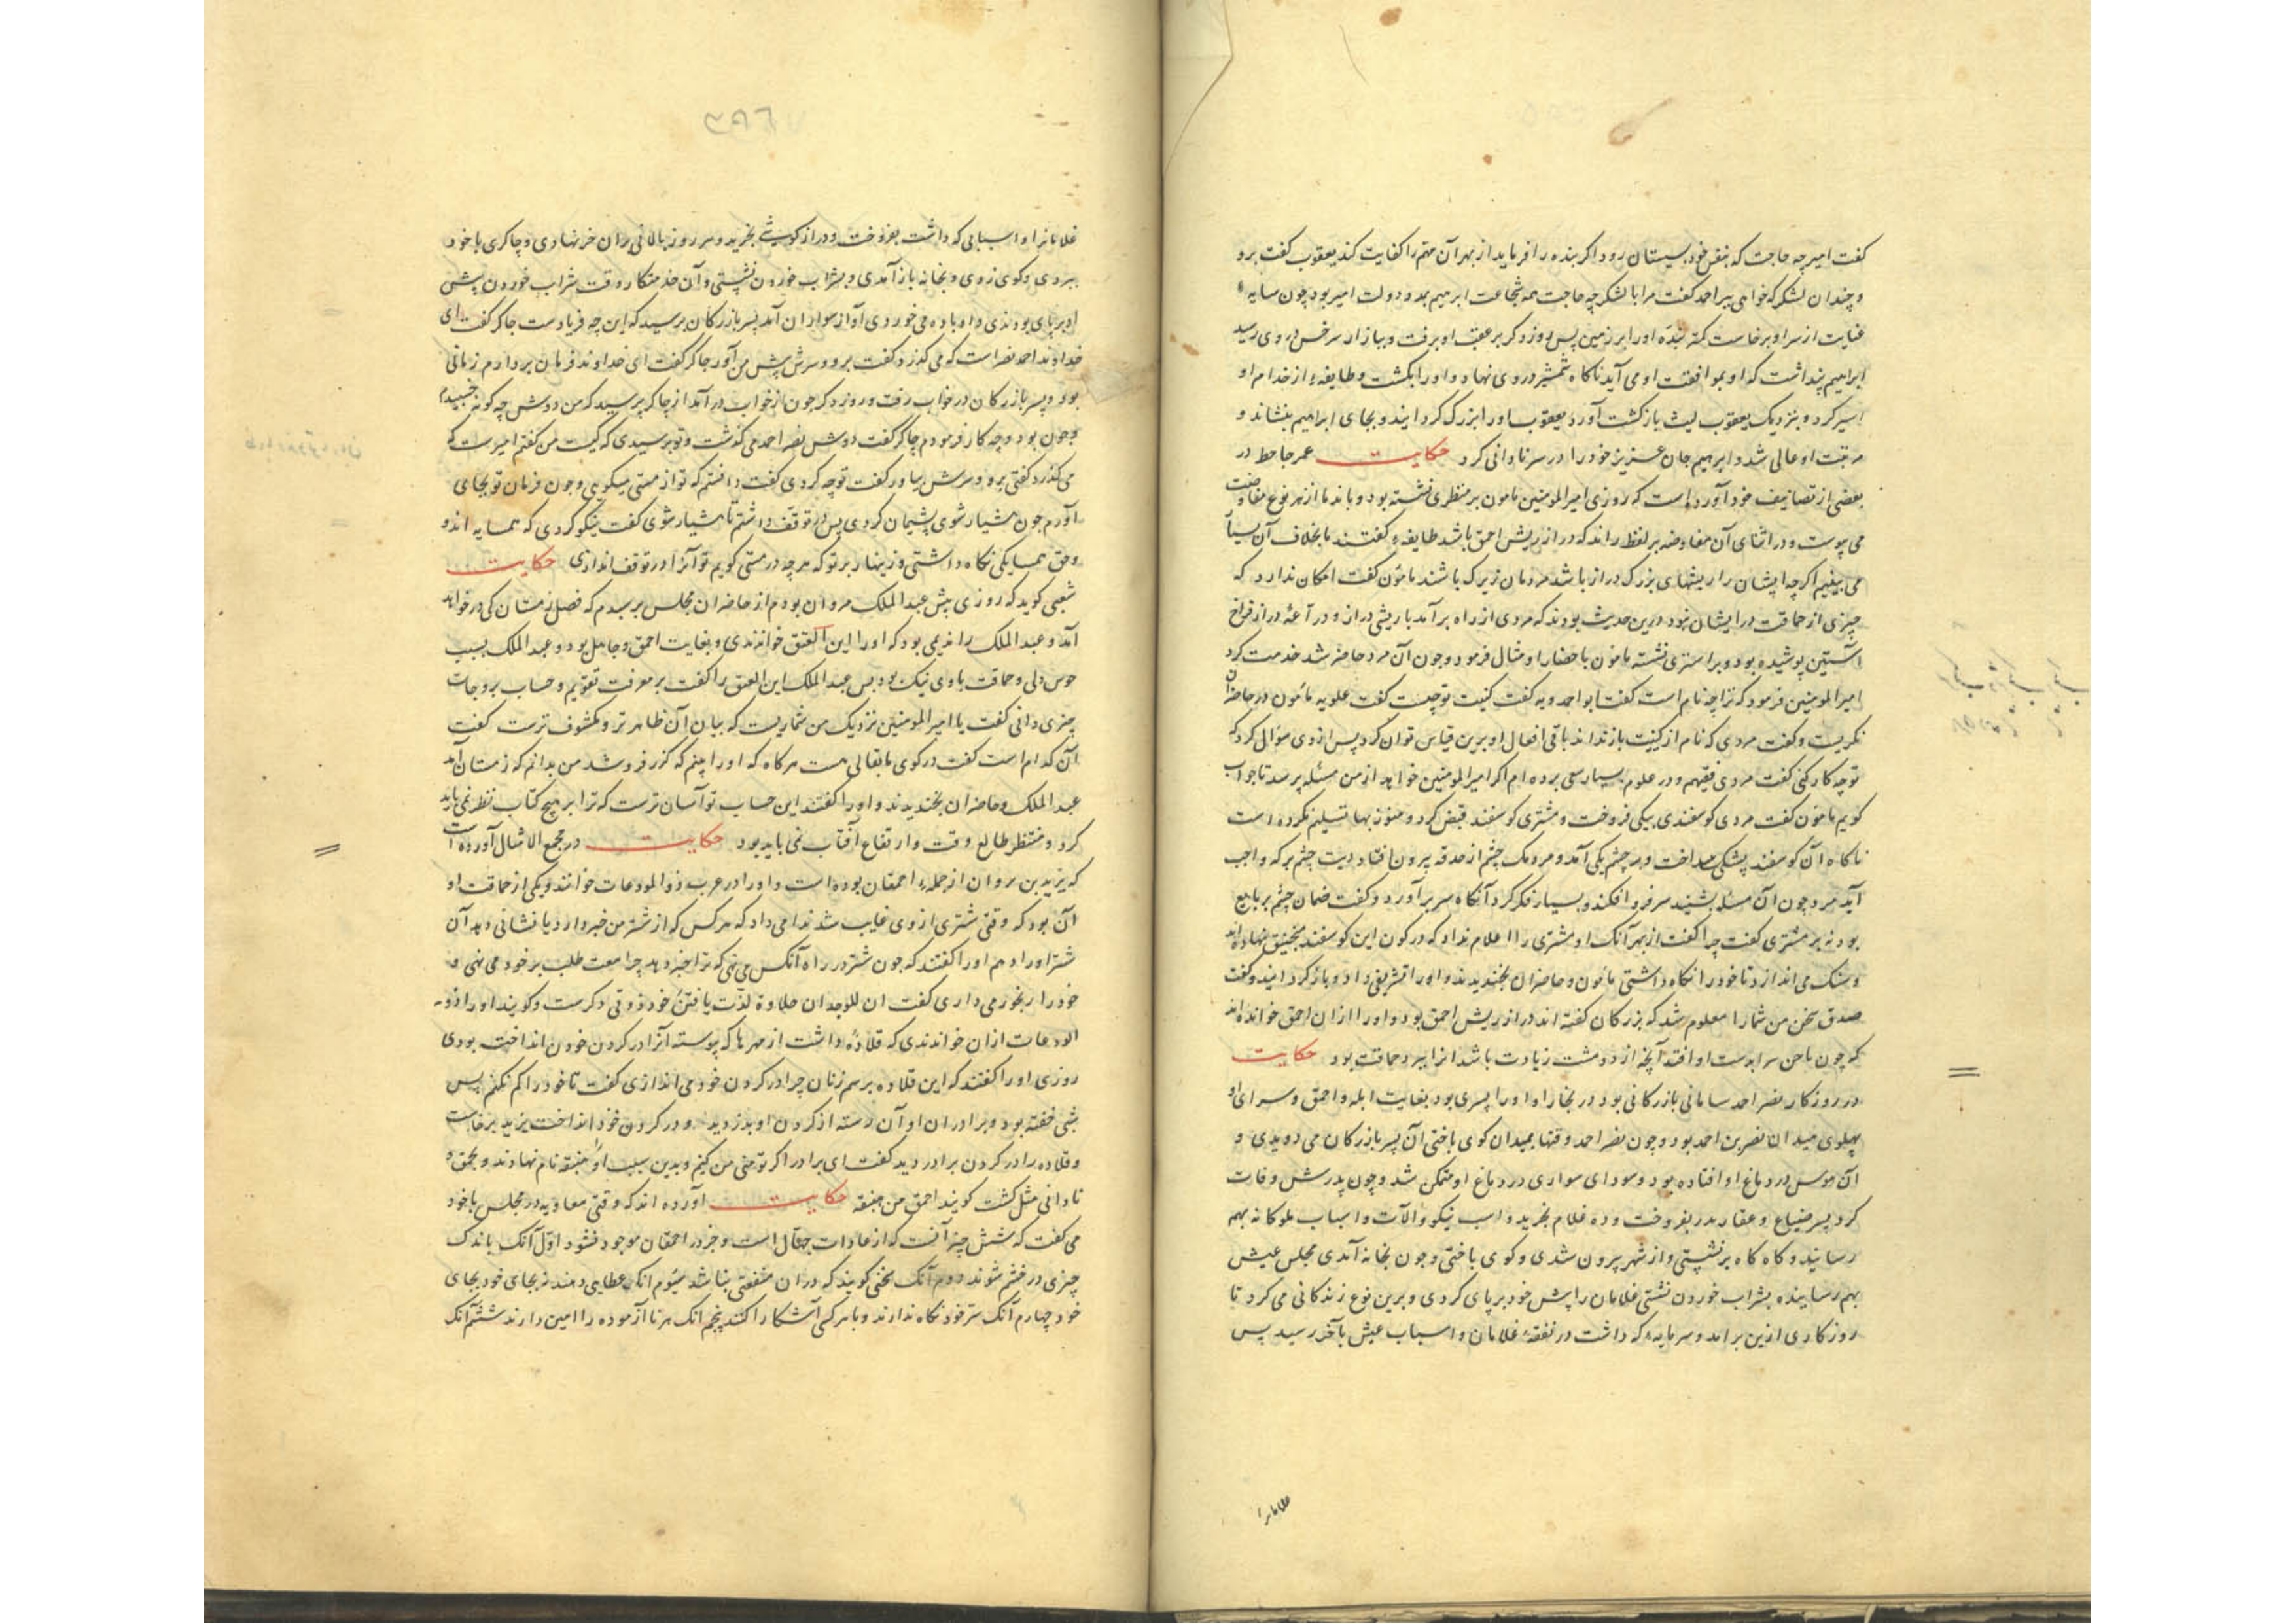 گفت امیر چه حاجت که بنفس خود بسیستان رود اگر بنده را فرماید از بهر آن مهم را کفایت کند یعقوب گفت برو
و چندان لشکر که خواهی ببر احمد گفت مرا با لشکر چه حاجت همه شجاعت ابراهیم بمدد دولت امیر بود چون سایه
عنایت از سر او برخاست کمتر بنده او را بر زمین پس روز دگر بر عقب او برفت و ببازار سرخس در وی رسید
ابراهیم پنداشت که او بموافقت او می آید ناگاه شمشیر در وی نهاد و او را بکشت و طایفهٔ از خدام او
اسیر کرد و بنزدیک یعقوب لیث بازگشت آورد یعقوب او را بزرگ گردانید و بجای ابراهیم بنشاند و
مرتبت او عالی شد و ابراهیم جان عزیز خود را در سر نادانی کرد حکایت عمر جاحظ در
بعضی از تصانیف خود آورده است که روزی امیر المومنین مامون بر منظری نشسته بود و با ندما از هر نوع مفاوضت
می پیوست و در اثنای آن مفاوضه بر لفظ راند که دراز ریش احمق باشد طایفهٔ گفتند ما بخلاف آن بسیار
می بینیم اگر چه ایشان را ریشهای بزرگ دراز باشد مردمان زیرک باشند مامون گفت امکان ندارد که
چیزی از حماقت در ایشان نبود درین حدیث بودند که مردی از راه برآمد با ریشی دراز و دراعهٔ دراز فراخ
آستین پوشیده بود و بر استری نشسته مامون باحضار او مثال فرمود و چون آن مرد حاضر شد خدمت کرد
امیر المومنین فرمود که ترا چه نام است گفت ابو احمدویه گفت کنیت تو چیست گفت علویه مامون در حاضران
نگریست و گفت مردی که نام از کنیت باز نداند باقی افعال او برین قیاس توان کرد پس از وی سؤال کرد که
تو چه کار کنی گفت مردی فقیهم و در علوم بسیار سعی برده ام اگر امیر المومنین خواهد از من مسئله پرسد تا جواب
گویم مامون گفت مردی گوسفندی بیکی فروخت و مشتری گوسفند قبض کرد و هنوز بها تسلیم نکرده است
ناگاه آن گوسفند پشکی بینداخت و بر چشم یکی آمد و مردمک چشم از حدقه بیرون افتاد دیت چشم بر که واجب
آید مرد چون آن مسئله بشنید سر فرو افکند و بسیار فکر کرد آنگاه سر برآورد و گفت ضمان چشم بر بایع
بود نه بر مشتری گفت چرا گفت از بهر آنک او مشتری را اعلام نداد که در کون این گوسفند منجنیق نهاده اند
و سنگ می اندازد تا خود را نگاه داشتی مامون و حاضران بخندیدند و او را تشریفی داد و بازگردانید و گفت
صدق سخن من شما را معلوم شد که بزرگان گفته اند دراز ریش احمق بود و او را از آن احمق خوانده اند
که چون محاسن بدست او افتد آنچه از دو مشت زیادت باشد از ابر و حماقت بود حکایت
در روزگار نصر احمد سامانی بازرگانی بود در بخارا و او را پسری بود بغایت ابله و احمق و سرای او
پهلوی میدان نصر بن احمد بود و چون نصر احمد وقتها بمیدان گوی باختی آن پسر بازرگان می دویدی و
آن هوس در دماغ او افتاده بود و سودای سواری در دماغ او متمکن شد و چون پدرش وفات
کرد پسر ضیاع و عقار پدر بفروخت و ده غلام بخرید و اسب نیکو و آلات و اسباب ملوکانه بهم
رسانید و گاه گاه برنشستی و از شهر بیرون شدی و گوی باختی و چون بخانه آمدی مجلس عیش
بهم رسانیده بشراب خوردن نشستی غلامان را پیش خود برپای کردی و برین نوع زندگانی می کرد تا
روزگاری ازین برآمد و سرمایه که داشت در نفقهٔ غلامان و اسباب عیش بآخر رسید پس
غلامانرا
غلامانرا و اسبانی که داشت بفروخت و درازگوشی بخرید و هر روز پالانی بران خر نهادی و چاکری با خود
ببردی و گوی زدی و بخانه بازآمدی و بشراب خوردن نشستی و آن خدمتکار وقت شراب خوردن پیش
او برپای بودی و او باده می خوردی آواز سواران آمد پسر بازرگان پرسید که این چه فریادست چاکر گفت ای
خداوند احمد نصر است که می گذرد گفت برو و سرش پیش من آور چاکر گفت ای خداوند فرمان بردارم زمانی
بود و پسر بازرگان در خواب رفت و روز دگر چون از خواب درآمد از چاکر پرسید که من دوش چه گونه خسبیدم
و چون بود و چه کار فرمودم چاکر گفت دوش نصر احمد می گذشت و تو پرسیدی که کیست من گفتم امیر است که
می گذرد گفتی برو و سرش بیاور گفت تو چه کردی گفت دانستم که تو از مستی میگویی و چون فرمان تو بجای
آورم چون هشیار شوی پشیمان گردی پس در توقف داشتم تا هشیار شوی گفت نیکو کردی که همسایه اند و
و حق همسایگی نگاه داشتی و زینهار بر تو که هر چه در مستی گویم تو آنرا در توقف اندازی حکایت
شعبی گوید که روزی پیش عبد الملک مروان بودم از حاضران مجلس پرسیدم که فصل زمستان کی در خواهد
آمد و عبد الملک را ندیمی بود که او را ابن العقق خواندندی و بغایت احمق و جاهل بود و عبد الملک بسبب
خوش دلی و حماقت با وی نیک بود پس عبد الملک ابن العقق را گفت بر معرفت تقویم و حساب بروجات
چیزی دانی گفت یا امیر المومنین نزدیک من شماریست که بیان آن ظاهرتر و مکشوف ترست گفت
آن کدام است گفت در کوی ما بقالی هست هرگاه که او را بینم که گزر فروشد من بدانم که زمستان آمد
عبد الملک و حاضران بخندیدند و او را گفتند این حساب تو آسان ترست که ترا بر هیچ کتاب نظر نمی باید
کرد و منتظر طالع وقت و ارتفاع آفتاب نمی باید بود حکایت در مجمع الامثال آورده است
که یزید بن مروان از جملهٔ احمقان بوده است و او را در عرب ذو الودعات خوانند و یکی از حماقت او
آن بود که وقتی شتری از وی غایب شد ندا می داد که هر کس که از شتر من خبر دارد یا نشانی دهد آن
شتر او را دهم او را گفتند که چون شتر در راه آنکس می نهی که ترا خبر دهد چرا مشقت طلب بر خود می نهی و
خود را رنجور می داری گفت ان للوجدان حلاوة لذت یافتن خود ذوقی دگرست و گویند او را ذو
الودعات ازان خواندندی که قلادهٔ داشت از مهرها که پیوسته آنرا در گردن خود انداخته بودی
روزی او را گفتند که این قلاده برسم زنان چرا در گردن خود می اندازی گفت تا خود را گم نکنم پس
شبی خفته بود و برادران او آن رسته از گردن او بدزدید و در گردن خود انداخت یزید برخاست
و قلاده را در گردن برادر دید گفت ای برادر اگر تو منی من کیم و بدین سبب او را هبنقه نام نهادند و بحمق و
نادانی مثل گشت گویند احمق من هبنقه حکایت آورده اند که وقتی معاویه در مجلس با خود
می گفت که شش چیز آنست که از عادات جهال است و جز در احمقان موجود نشود اول آنک باندک
چیزی در خشم شوند دوم آنک سخنی گویند که دران منفعتی نباشد سیوم آنک عطایی دهند نه بجای خود بجای
خود چهارم آنک سر خود نگاه ندارند و با هر کسی آشکارا کنند پنجم آنک هر ناآزموده را امین دارند ششم آنک